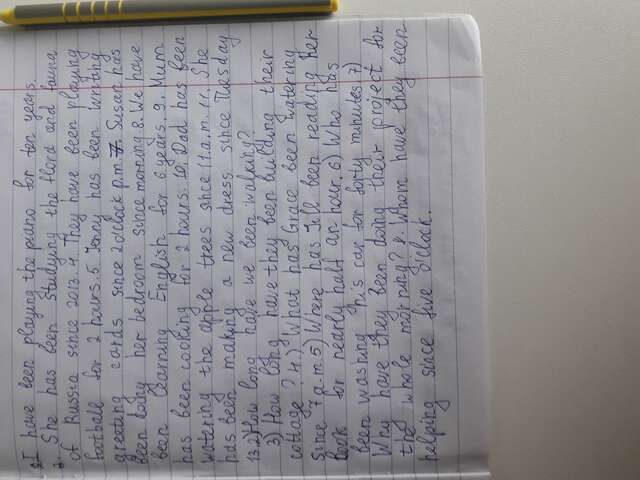 2. I have been playing the piano for ten years.
3. She has been studying the flora and fauna
of Russia since 2013. 4. They have been playing
football for 2 hours. 5. Jenny has been writing
greeting cards since 2 o'clock p.m. 7. Susan has
been today her bedroom since morning 8. We have
been learning English for 6 years. 9. Mum
has been cooking for 2 hours. 10. Dad has been
watering the apple trees since 11.a.m. 11. She
has been making a new dress since Tuesday.
13.2) How long have we been walking?
3) How long have they been building their
cottage? 4) What has Grace been watering
since 7 a.m. 5) Where has Jill been reading her
book for nearly half an hour. 6) Who has
been washing his car for forty minutes? 7)
Why have they been doing their project for
the whole morning? 8. Whom have they been
helping since five o'clock.